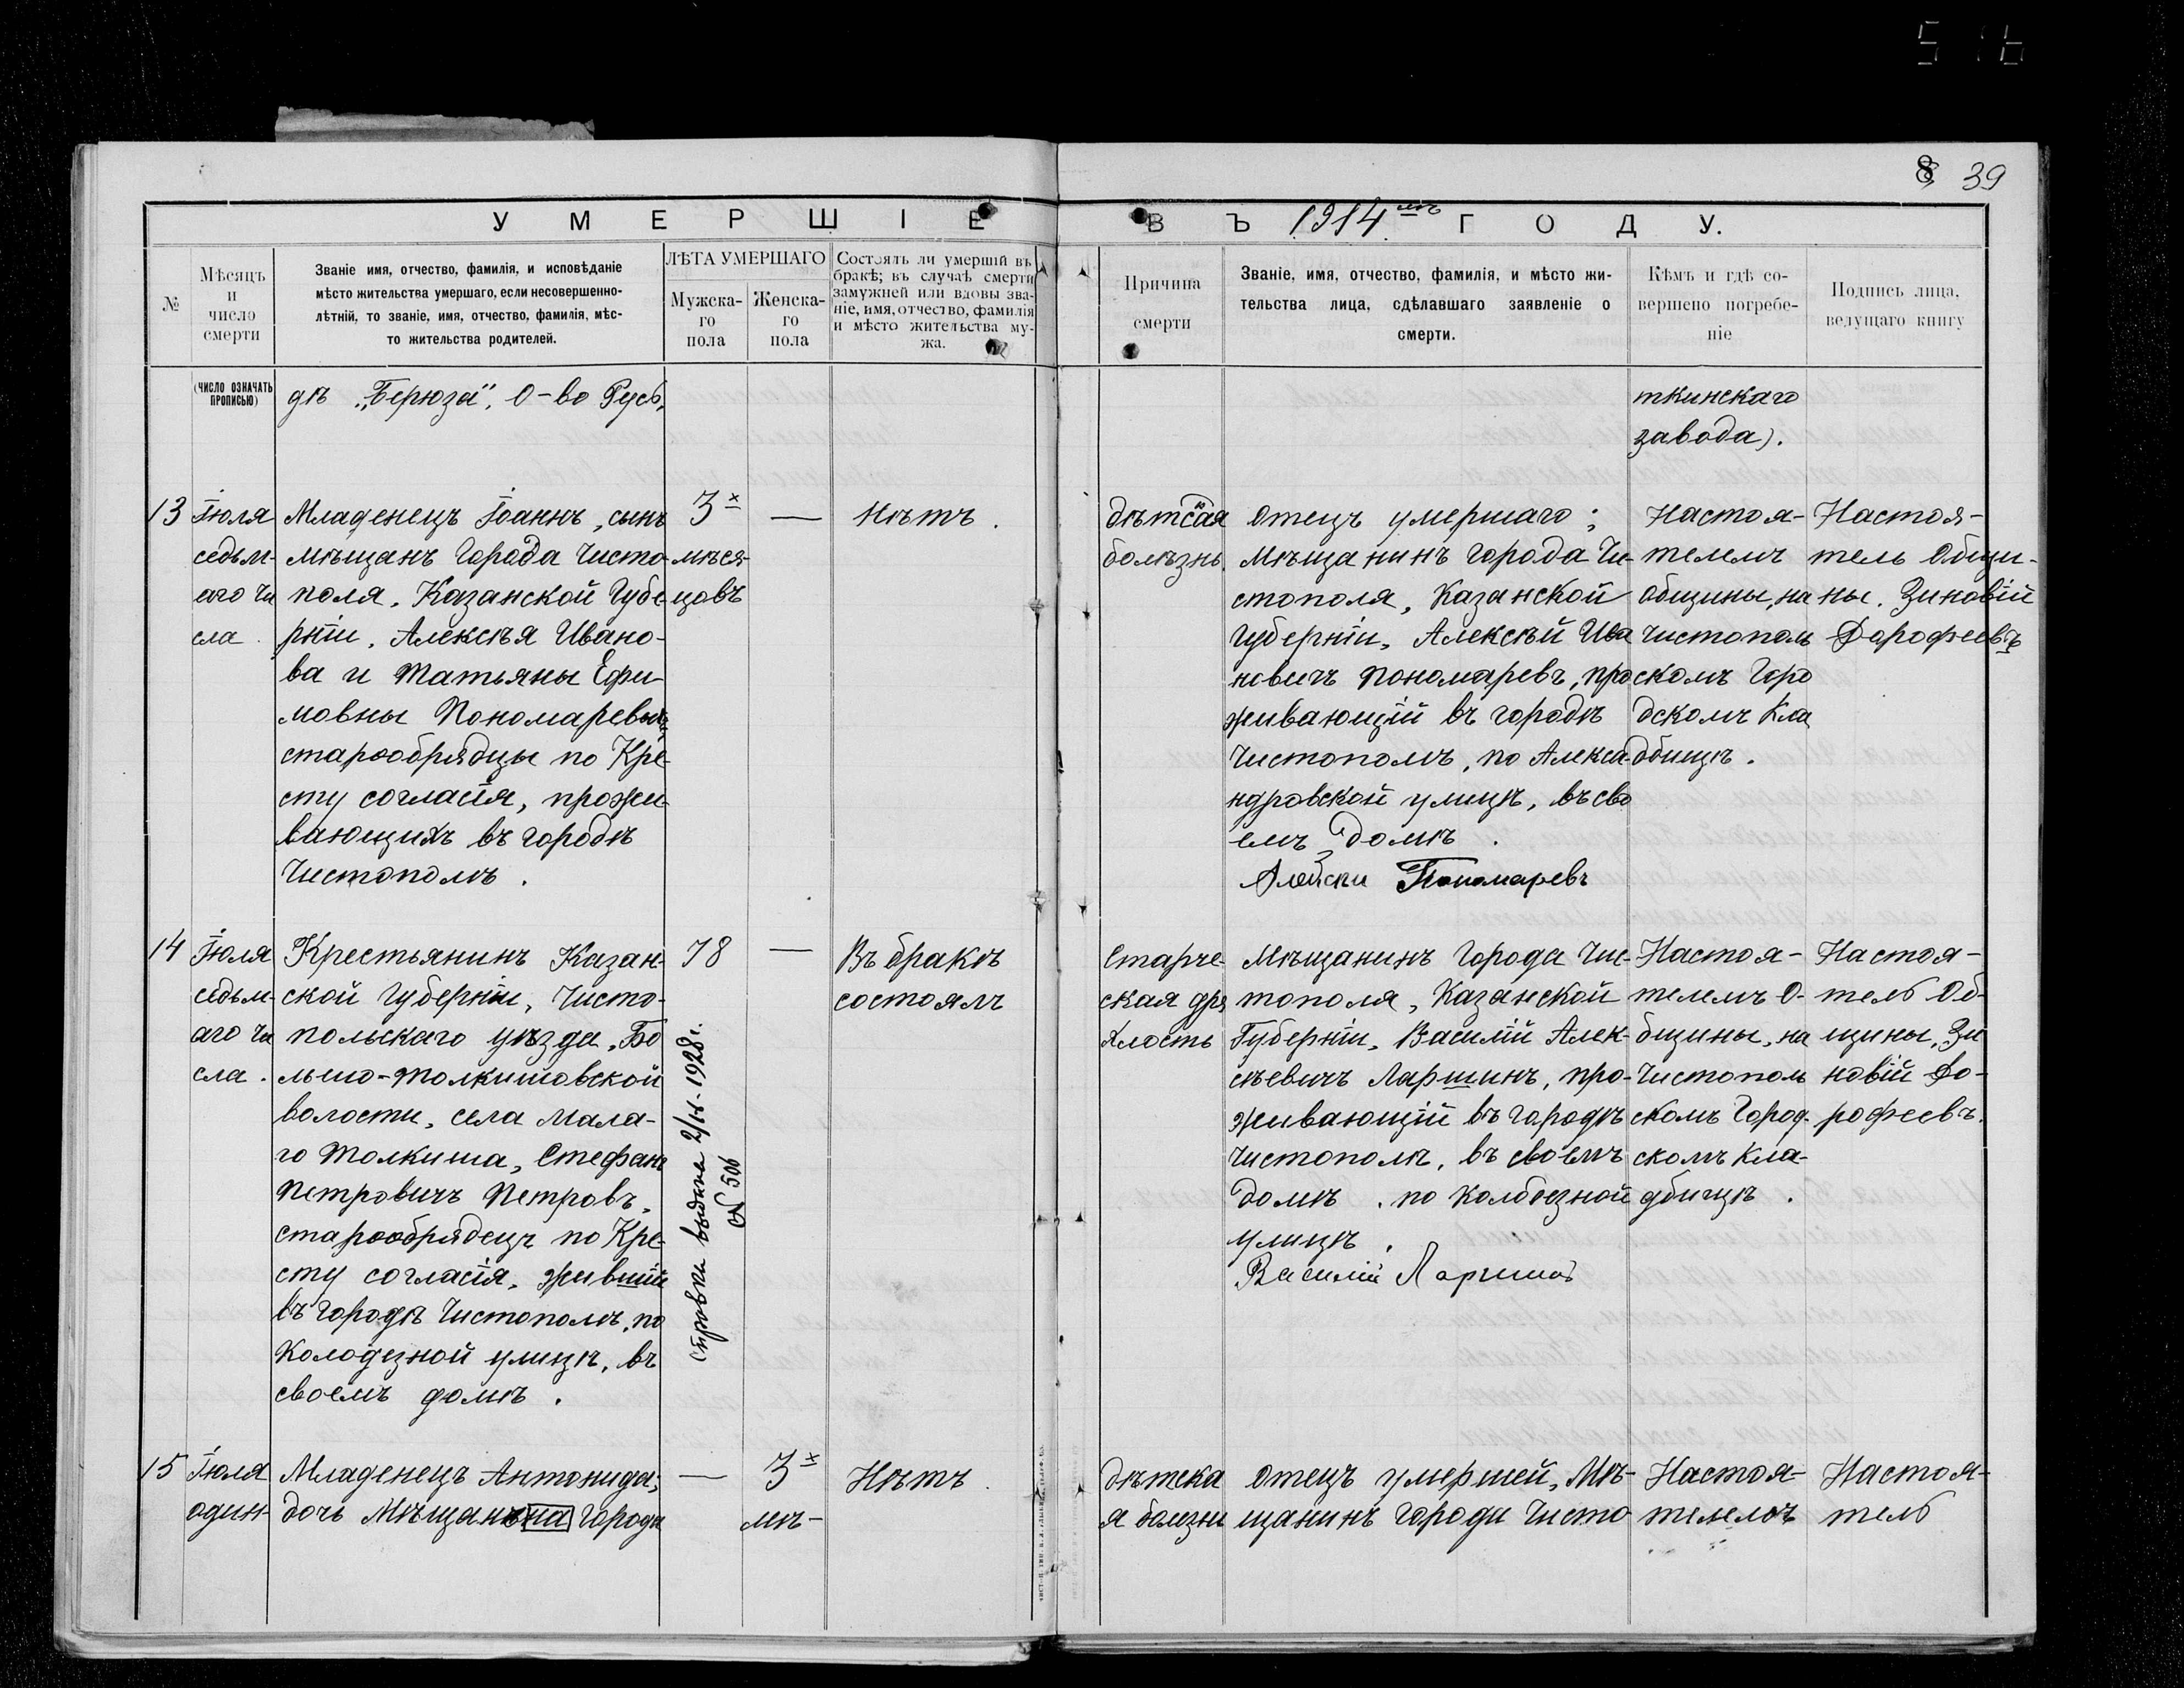 8 39
УМЕРШІЕ ВЪ 1914мъ ГОДУ.
№
Мѣсяцъ
и
число
смерти
Званіе имя, отчество, фамилія, и исповѣданіе
мѣсто жительства умершаго, если несовершенно-
лѣтній, то званіе, имя, отчество, фамилія, мѣс-
то жительства родителей.
ЛѢТА УМЕРШАГО
Мужска-
го
пола
Женска-
го
пола
Состоялъ ли умершій въ
бракѣ; въ случаѣ смерти
замужней или вдовы зва-
ніе, имя, отчество, фамилія
и мѣсто жительства му-
жа.
Причина
смерти
Званіе, имя, отчество, фамилія, и мѣсто жи-
тельства лица, сдѣлавшаго заявленіе о
смерти.
Кѣмъ и гдѣ со-
вершено погребе-
ніе
Подпись лица,
ведущаго книгу
(ЧИСЛО ОЗНАЧАТЬ
ПРОПИСЬЮ)
дѣ „Берюза", О-во Русь.
ткинскаго
завода).
13
Іюля
седьм-
аго чи
сла.
Младенецъ Іоаннъ, сынъ
мѣщанъ Города Чисто-
поля, Казанской Губе-
рніи, Алексѣя Ивано-
ва и Татьяны Ефи-
мовны Пономаревыхъ,
старообрядцы по Кре-
сту согласія, прожи-
вающихъ въ городѣ
Чистополѣ.
3х
мѣся-
цовъ
—
Нѣтъ.
дѣтская
болѣзнь.
Отецъ умершаго;
Мѣщанинъ Города Чи-
стополя, Казанской
Губерніи, Алексѣй Ива
новичъ Пономаревъ, про
живающій въ городѣ
Чистополѣ, по Алекса-
ндровской улицѣ, въ сво
емъ домѣ.
Алейски Пономаревъ
Настоя-
телемъ
Общины, на
Чистополь
скомъ Горо
дскомъ Кла
дбищѣ.
Настоя-
тель Общи-
ны, Зиновій
Дорофеевъ
14
Іюля
седьм-
аго чи
сла.
Крестьянинъ Казан-
ской Губерніи, Чисто-
польскаго уѣзда, Бо
льшо-Толкишовской
волости, села Мала-
го Толкиша, Стефанъ
Петровичъ Петровъ,
старообрядецъ по Кре-
сту согласія, жившій
въ городѣ Чистополѣ, по
Колодезной улицѣ, въ
своемъ домѣ.
78
справка выдана 2/IX-1928г.
№ 506
—
Въ бракѣ
состоялъ
Старче-
ская дря
хлость
Мѣщанинъ Города Чис-
тополя, Казанской
Губерніи, Василій Алек-
сѣевичъ Ларшинъ, про-
живающій въ городѣ
Чистополѣ, въ своемъ
домѣ, по Колодезной
улицѣ.
Василій Ларшинъ
Настоя-
телемъ О-
бщины, на
Чистополь
скомъ Город-
скомъ Кла-
дбищѣ.
Настоя-
тель Об-
щины, Зи
новій До-
рофеевъ.
15
Іюля
один-
Младенецъ Антонида;
дочь Мѣщанина Города
—
3х
мѣ-
Нѣтъ.
дѣтска
я болѣзнь
Отецъ умершей, Мѣ-
щанинъ Города Чисто
Настоя-
телемъ
Настоя-
тель